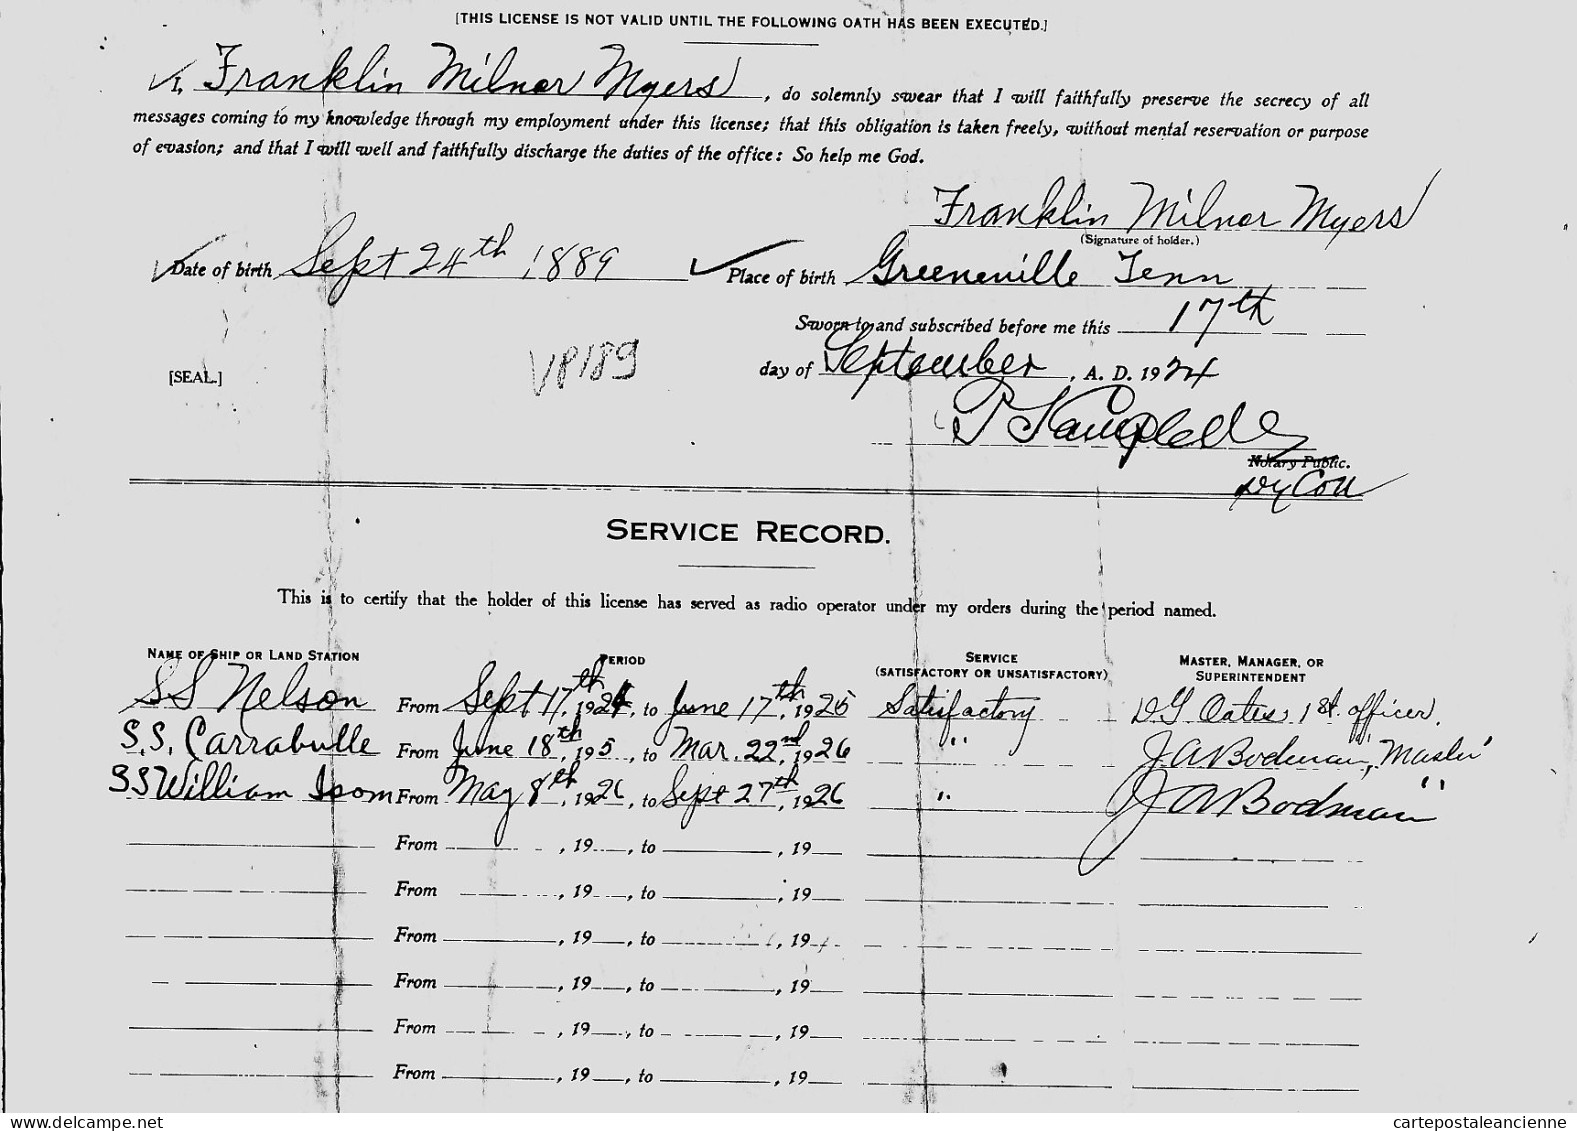 [THIS LICENSE IS NOT VALID UNTIL THE FOLLOWING OATH HAS BEEN EXECUTED.]
I, Franklin Milnor Myers, do solemnly swear that I will faithfully preserve the secrecy of all
messages coming to my knowledge through my employment under this license; that this obligation is taken freely, without mental reservation or purpose
of evasion; and that I will well and faithfully discharge the duties of the office: So help me God.
Franklin Milnor Myers
(Signature of holder.)
Date of birth Sept 24th 1889 Place of birth Greeneville Tenn
Sworn to and subscribed before me this 17th
[SEAL] VP189 day of September, A. D. 1924
Campbell
Notary Public.
Dy Coll
SERVICE RECORD.
This is to certify that the holder of this license has served as radio operator under my orders during the period named.
NAME OF SHIP OR LAND STATION PERIOD SERVICE (SATISFACTORY OR UNSATISFACTORY) MASTER, MANAGER, OR SUPERINTENDENT
SS Nelson From Sept 17th, 1924, to June 17th, 1925 Satisfactory D G Oates 1st. officer.
S.S. Carrabulle From June 18th, 195, to Mar. 22nd, 1926 " J A Bodman, Master
SS William Isom From May 8th, 1926, to Sept 27th, 1926 " J A Bodman "
From , 19 , to , 19
From , 19 , to , 19
From , 19 , to , 19
From , 19 , to , 19
From , 19 , to , 19
From , 19 , to , 19
www.delcampe.net cartepostaleancienne